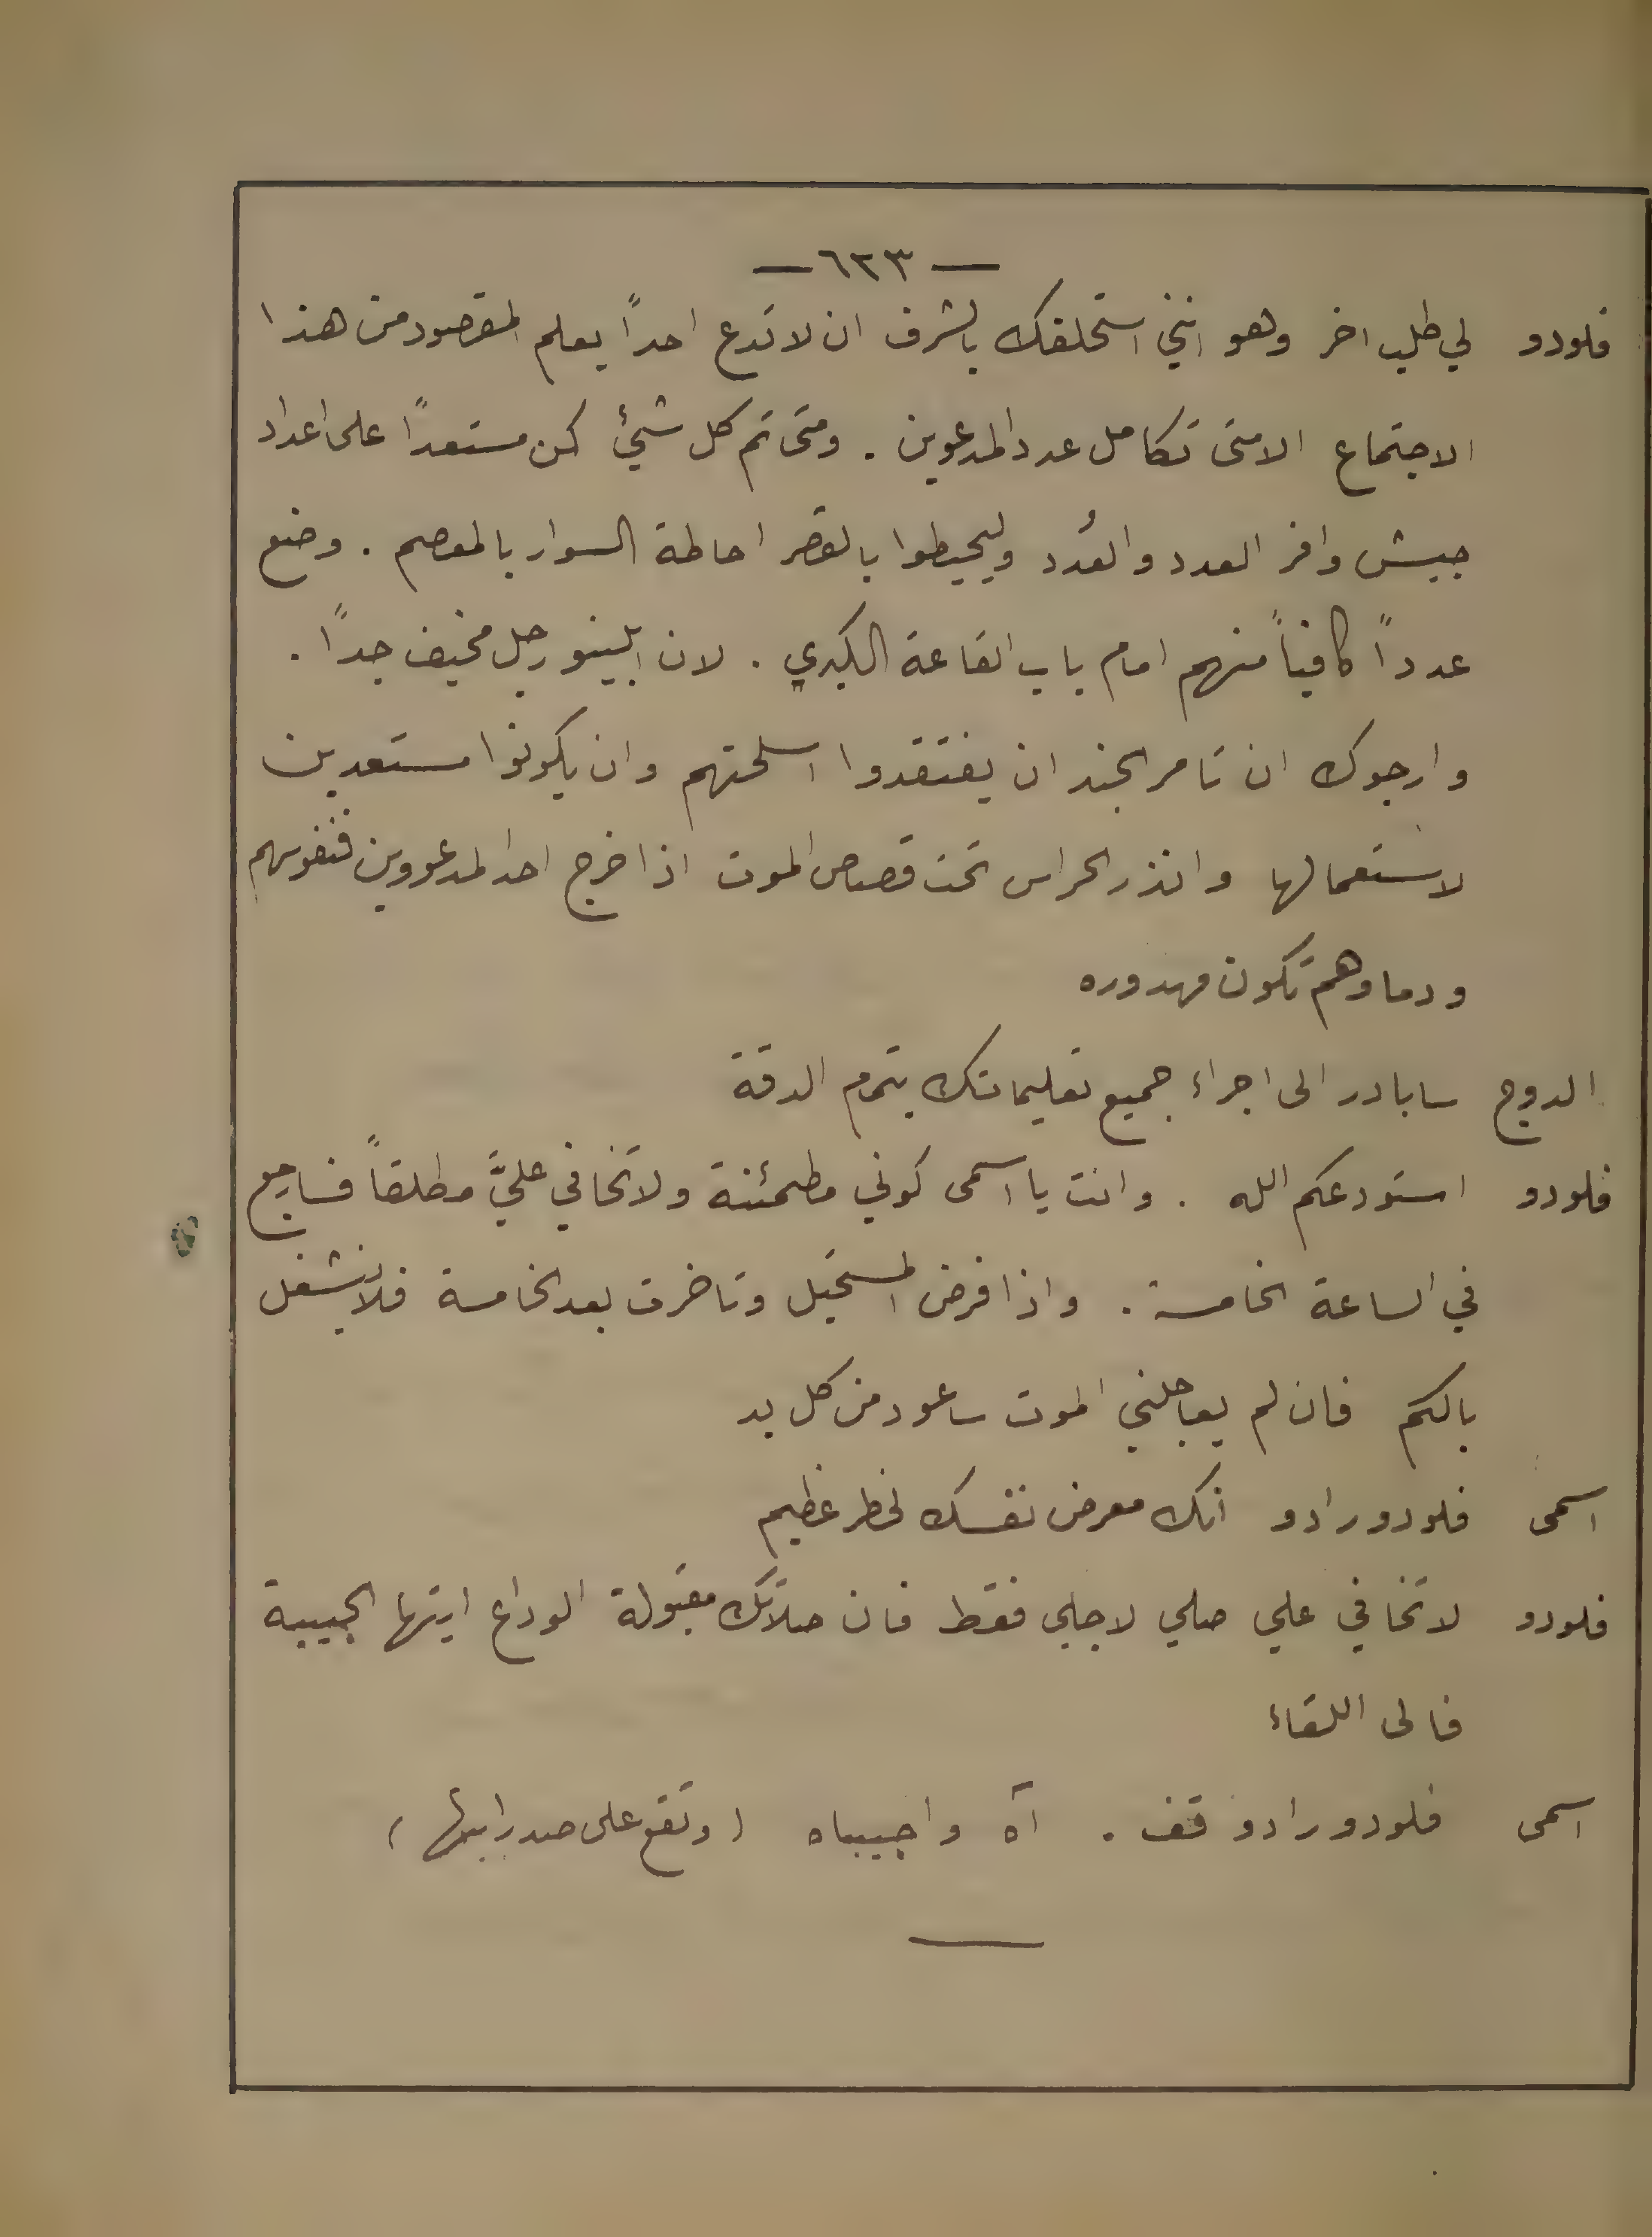 — ٦٢٣ —
فلودو لي طلب اخر وهو انني استحلفك بالشرف ان لا تدع احداً يعلم المقصود من هذا
الاجتماع الا متى تكامل عدد المدعوين . ومتى تم كل شيئ كن مستعداً على اعداد
جيش وافر العدد والعُدد وليحيطوا بالقصر احاطة السوار بالمعصم . وضع
عدداً كافياً منهم امام باب القاعة الكبري . لان ابلينو رجل مخيف جداً .
وارجوك ان تامر الجند ان يفتقدوا اسلحتهم وان يكونوا مستعدين
لاستعمالها وانذر الحراس تحت قصاص الموت اذا خرج احد المدعووين فنفوسهم
ودماوهم تكون مهدوره
الدوج سابادر الى اجراء جميع تعليماتك بتمام الدقة
فلودو استودعكم الله . وانت يا اسمى كوني مطمئنة ولا تخافي عليَّ مطلقاً فسارجع
في الساعة الخامسة . واذا فرض المستحيل وتاخرت بعد الخامسة فلا ينشغل
بالكم فان لم يعاجلني الموت ساعود من كل بد
اسمى فلودورادو انك معرض نفسك لخطر عظيم
فلودو لا تخافي علي صلي لاجلي فقط فان صلاتك مقبولة الوداع ايتها الحبيبة
فالى اللقاء
اسمى فلودورادو قف . آه واحبيباه (وتقع على صدر ابيها)